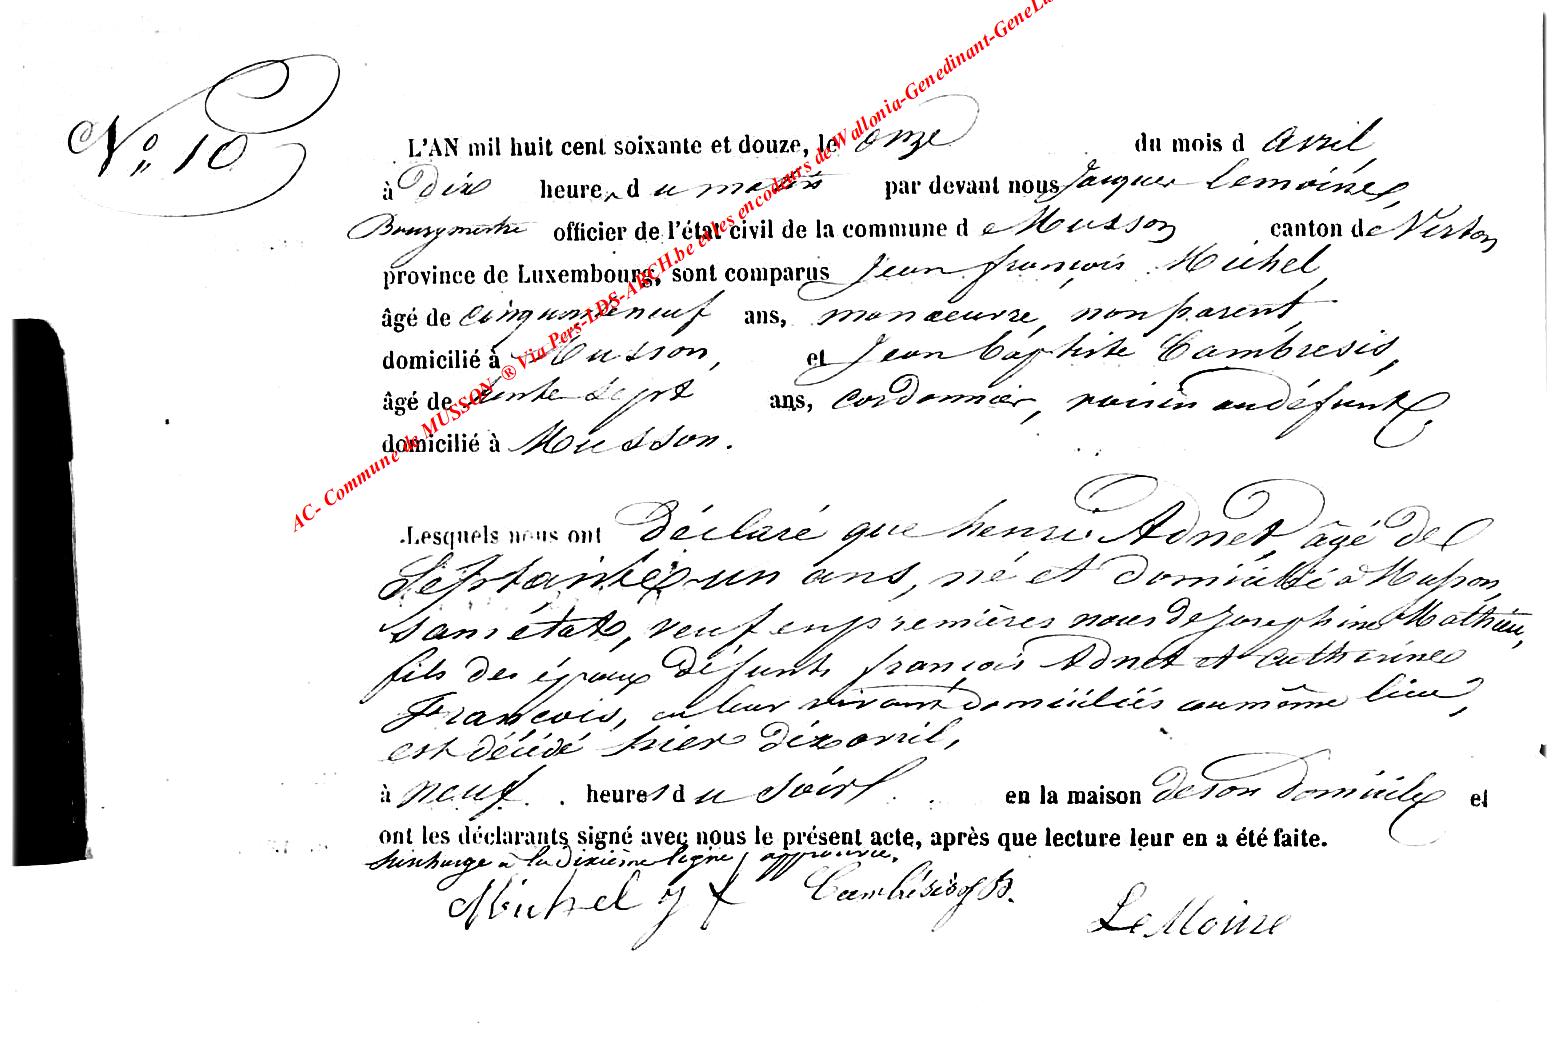 N° 10
L'AN mil huit cent soixante et douze, le onze du mois d avril,
à dix heure, d u matin par devant nous Jacques Lemoine,
Bourgmestre officier de l'état civil de la commune d e Musson canton de Virton
province de Luxembourg, sont comparus Jean françois Michel,
âgé de cinquante neuf ans, manœuvre, non parent,
domicilié à Musson, et Jean Baptiste Cambresis,
âgé de trente sept ans, cordonnier, voisin au défunt,
domicilié à Musson.
Lesquels nous ont déclaré que henri Adnet, âgé de
Septante-un ans, né et domicilié à Musson,
sans état, veuf en premières noces de Josephine Mathieu,
fils des époux défunts françois Adnet et Catherine
François, en leur vivant domiciliés au même lieu,
est décédé hier dix avril,
à neuf heures d u soir en la maison de son domicile et
ont les déclarants signé avec nous le présent acte, après que lecture leur en a été faite.
Surcharge à la dixième ligne approuvée.
Michel J f Cambrésis J B.
LeMoine
AC- Commune de MUSSON ® Via Pers-LDS-ARCH.be et les encodeurs de Wallonia-Genedinant-GeneLu